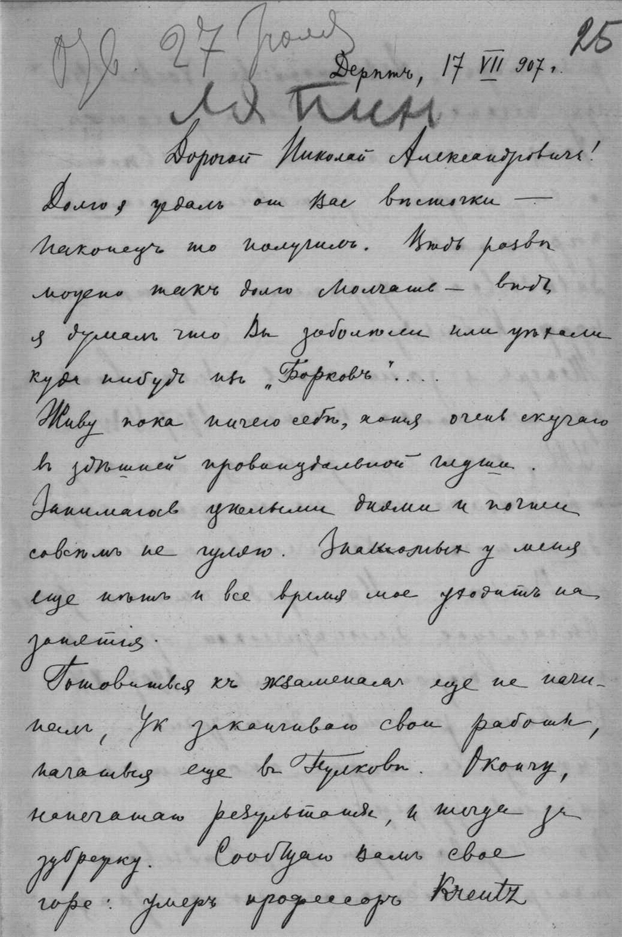 25
отв. 27 Июля
Дерптъ, 17 VII 907 г.
Ляпин
Дорогой Николай Александровичъ!
Долго я ждалъ от Вас весточки —
наконецъ то получилъ. Ведь разве
можно такъ долго молчать — ведь
я думалъ что Вы заболели или уехали
куда нибудь изъ „Борковъ"....
Живу пока ничего себе, хотя очень скучаю
в здешней провинцiальной глуши.
Занимаюсь целыми днями и почти
совсемъ не гуляю. Знакомых у меня
еще нетъ и все время мое уходитъ на
занятiя.
Готовиться къ экзаменамъ еще не начи-
налъ, заканчиваю свои работы,
начатыя еще в Пулкове. Окончу,
напечатаю результаты, и тогда за
зубрежку. Сообщаю вамъ свое
горе: умеръ профессоръ Kreutz